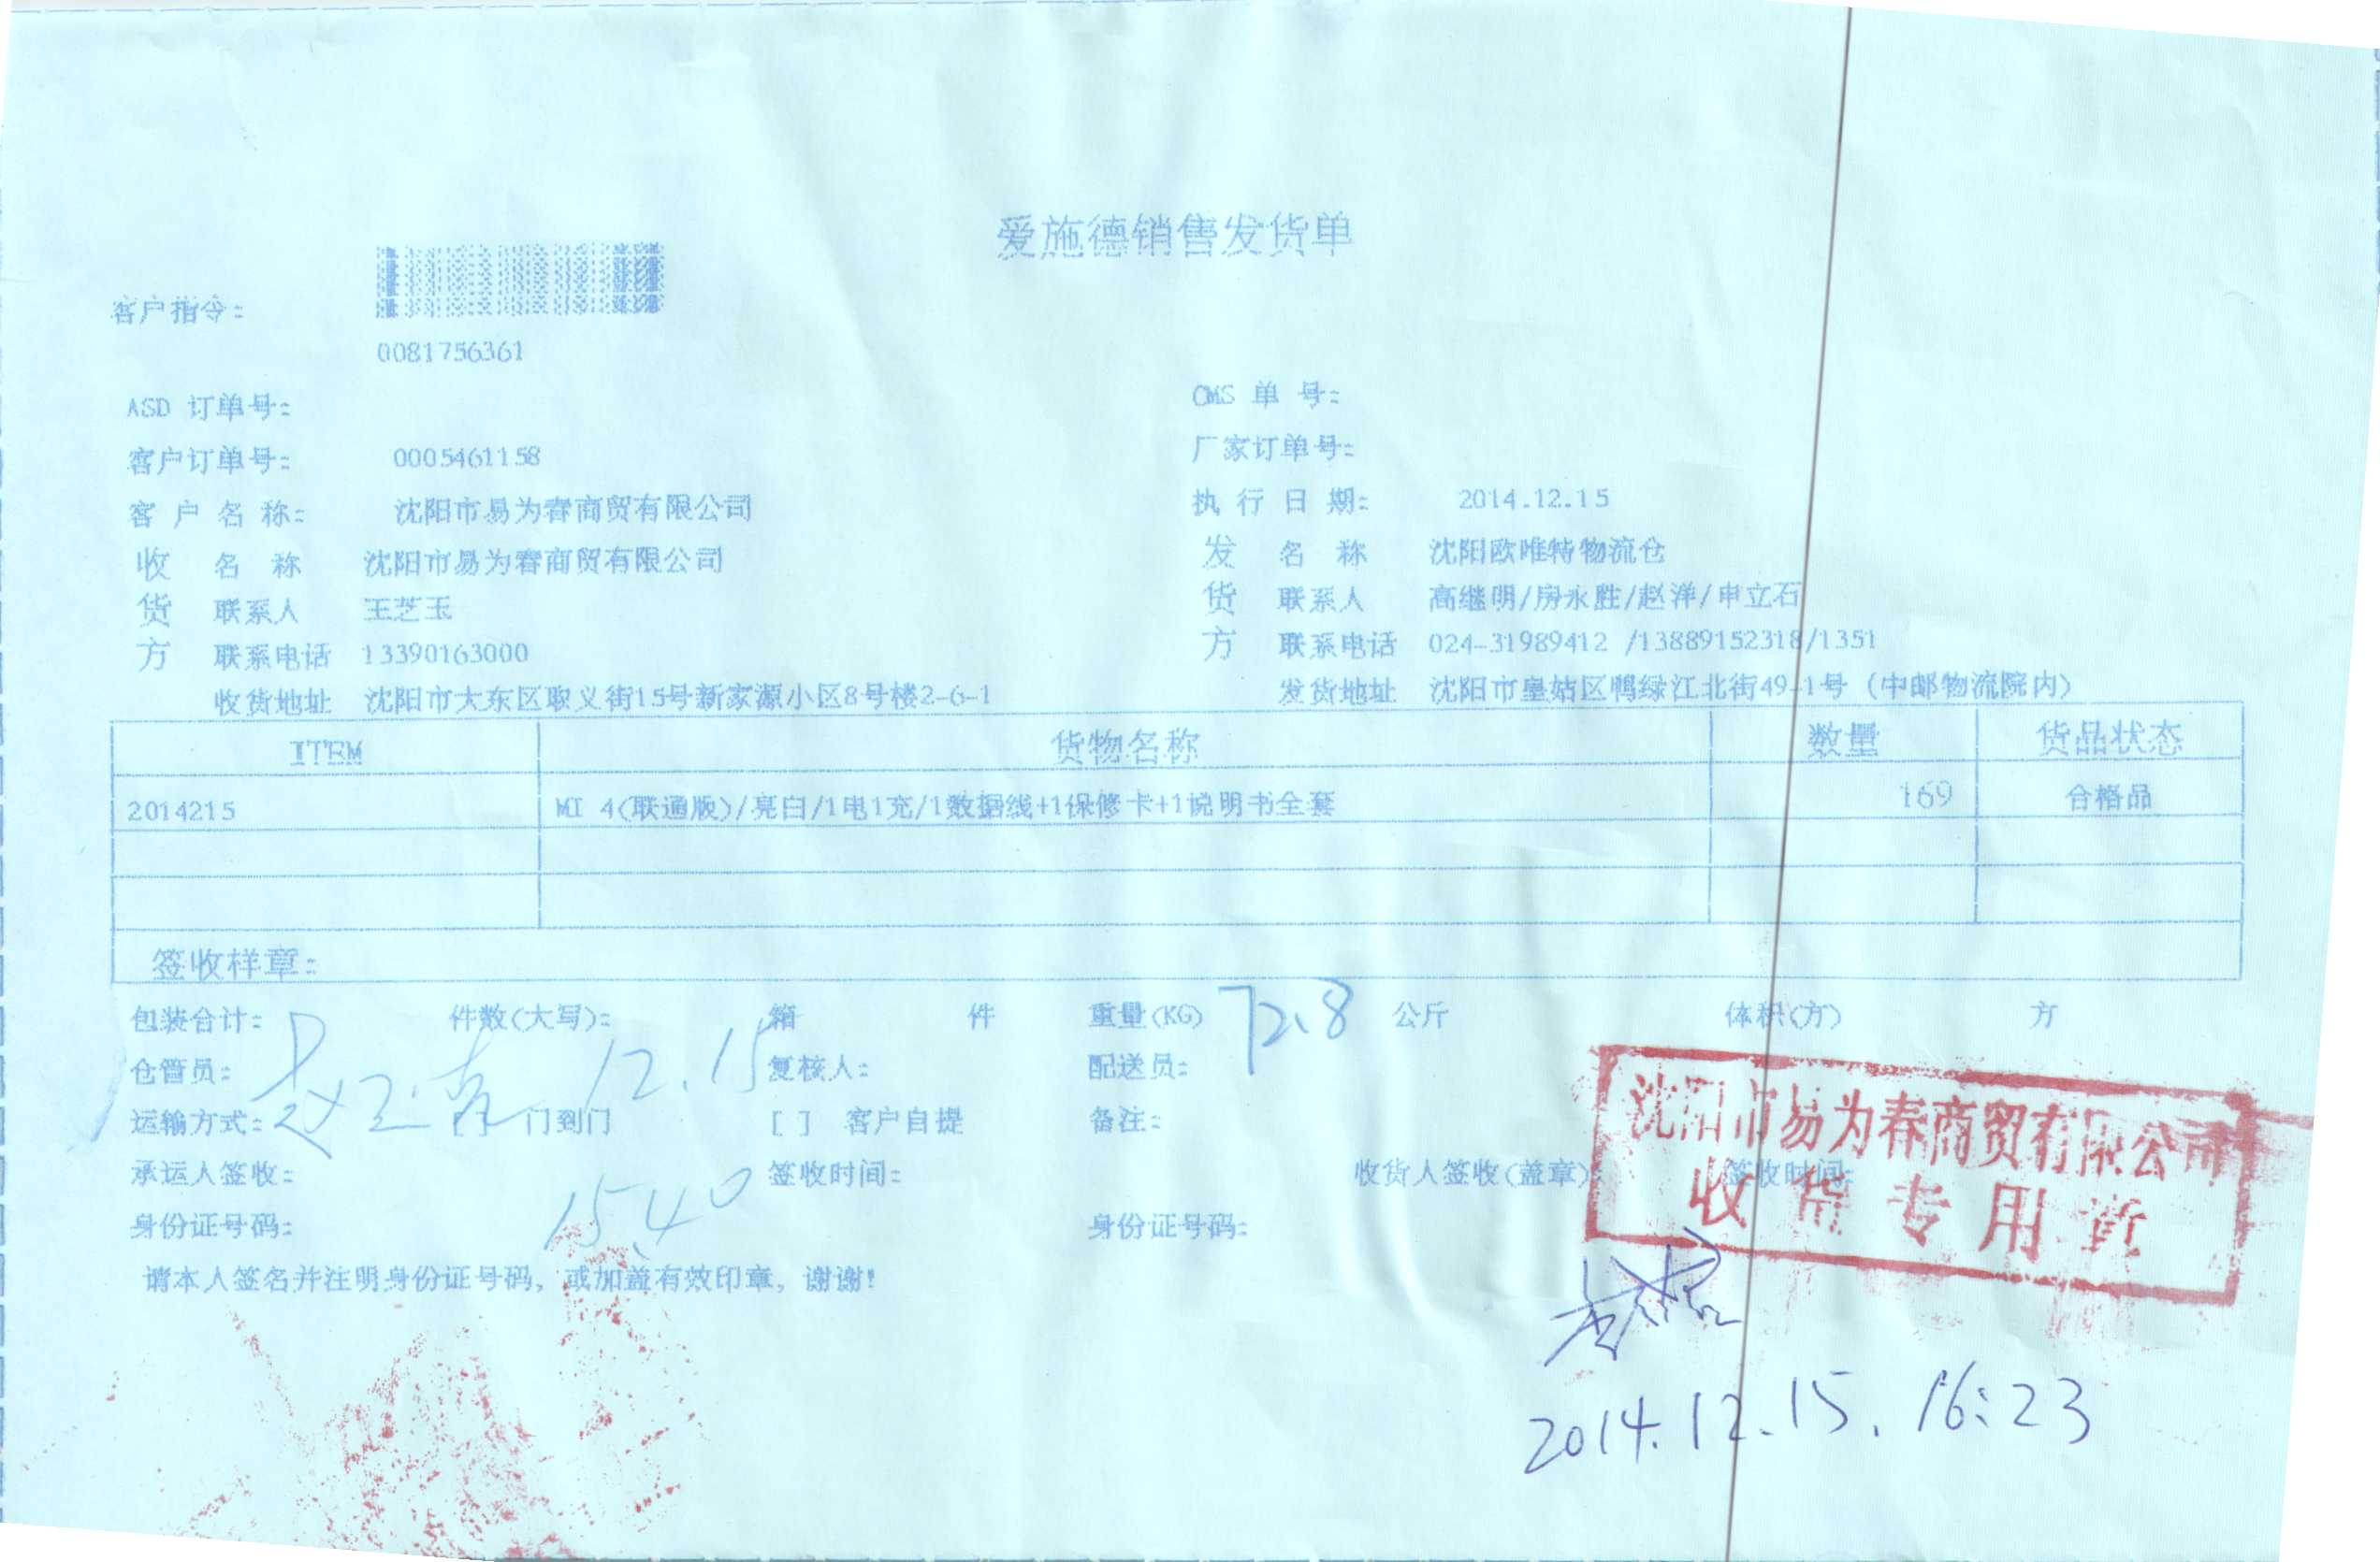 爱施德销售发货单
客户指令:
0081756361
ASD 订单号: OMS 单 号:
客户订单号: 0005461158 厂家订单号:
客 户 名 称: 沈阳市易为春商贸有限公司 执 行 日 期: 2014.12.15
收 名 称 沈阳市易为春商贸有限公司 发 名 称 沈阳欧唯特物流仓
货 联系人 王芝玉 货 联系人 高继明/房永胜/赵洋/申立石
方 联系电话 13390163000 方 联系电话 024-31989412 /13889152318/1351
收货地址 沈阳市大东区取义街15号新家源小区8号楼2-6-1 发货地址 沈阳市皇姑区鸭绿江北街49-1号 (中邮物流院内)
ITEM 货物名称 数量 货品状态
2014215 MI 4(联通版)/亮白/1电1充/1数据线+1保修卡+1说明书全套 169 合格品
签收样章:
包装合计: 件数(大写): 箱 件 重量(KG) 72.8 公斤 体积(方) 方
仓管员: 12.15 复核人: 配送员:
运输方式: [ ] 门到门 [ ] 客户自提 备注:
承运人签收: 签收时间: 收货人签收(盖章): 签收时间:
15.40
身份证号码: 身份证号码:
请本人签名并注明身份证号码, 或加盖有效印章, 谢谢!
沈阳市易为春商贸有限公司
收货专用章
2014.12.15. 16:23